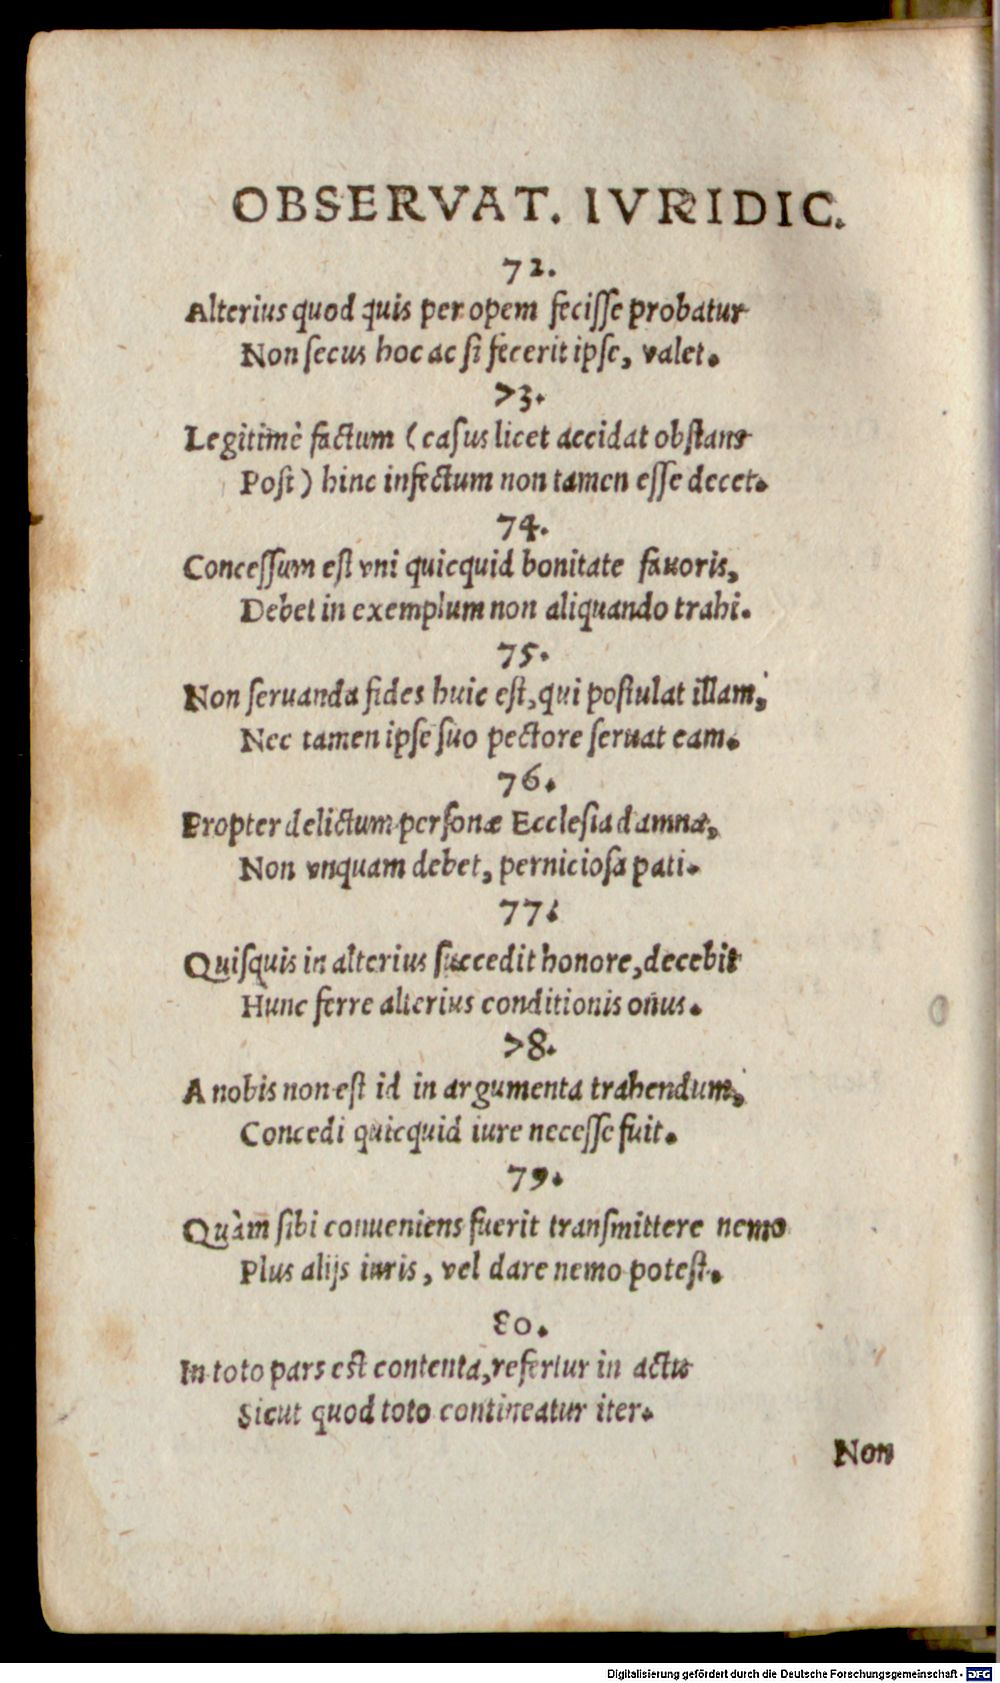 OBSERVAT. IVRIDIC.
72.
Alterius quod quis per opem fecisse probatur
Non secus hoc ac si fecerit ipse, valet.
73.
Legitimè factum (casus licet accidat obstans
Post) hinc infectum non tamen esse decet.
74.
Concessum est vni quicquid bonitate fauoris,
Debet in exemplum non aliquando trahi.
75.
Non seruanda fides huic est, qui postulat illam,
Nec tamen ipse suo pectore seruat eam.
76.
Propter delictum personæ Ecclesia damna,
Non vnquam debet, perniciosa pati.
77.
Quisquis in alterius succedit honore, decebit
Hunc ferre alterius conditionis onus.
78.
A nobis non est id in argumenta trahendum,
Concedi quicquid iure necesse fuit.
79.
Quàm sibi conueniens fuerit transmittere nemo
Plus alijs iuris, vel dare nemo potest.
80.
In toto pars est contenta, refertur in actu
Sicut quod toto contineatur iter.
Non
Digitalisierung gefördert durch die Deutsche Forschungsgemeinschaft - DFG